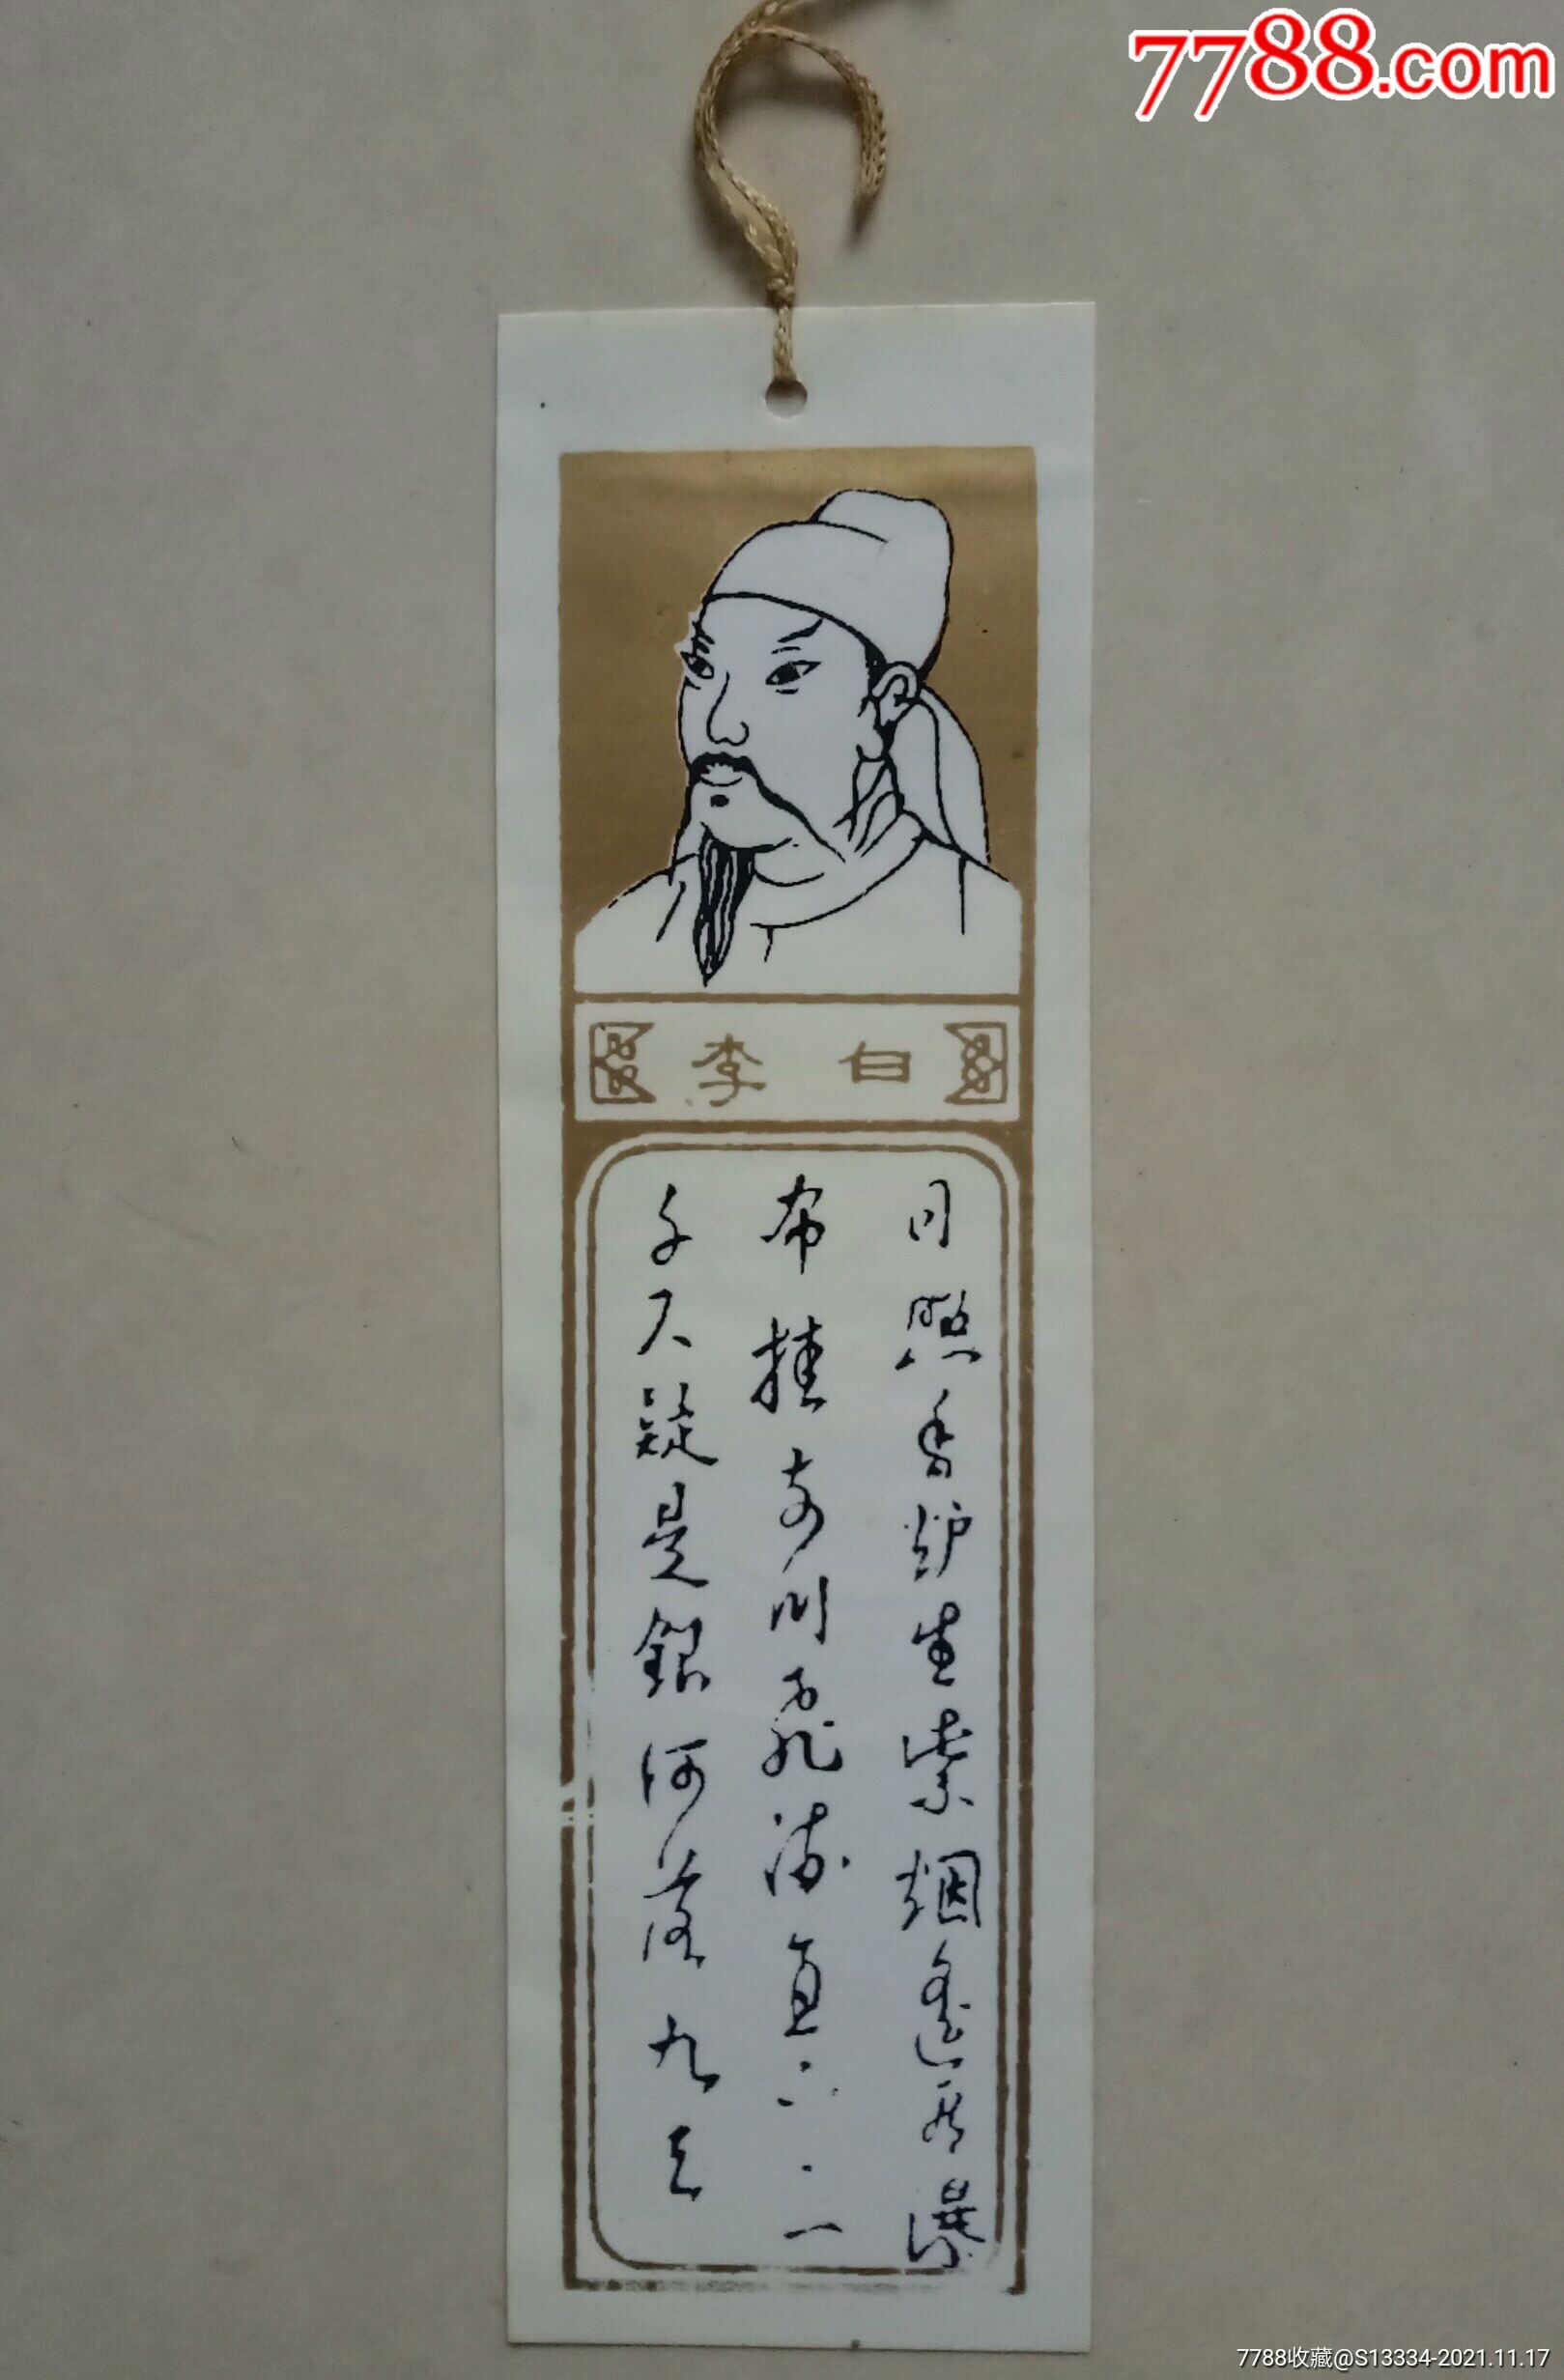 7788.com
李 白
日照香炉生紫烟遙看瀑
布挂前川飛流直下三
千尺疑是銀河落九天
7788收藏@S13334-2021.11.17